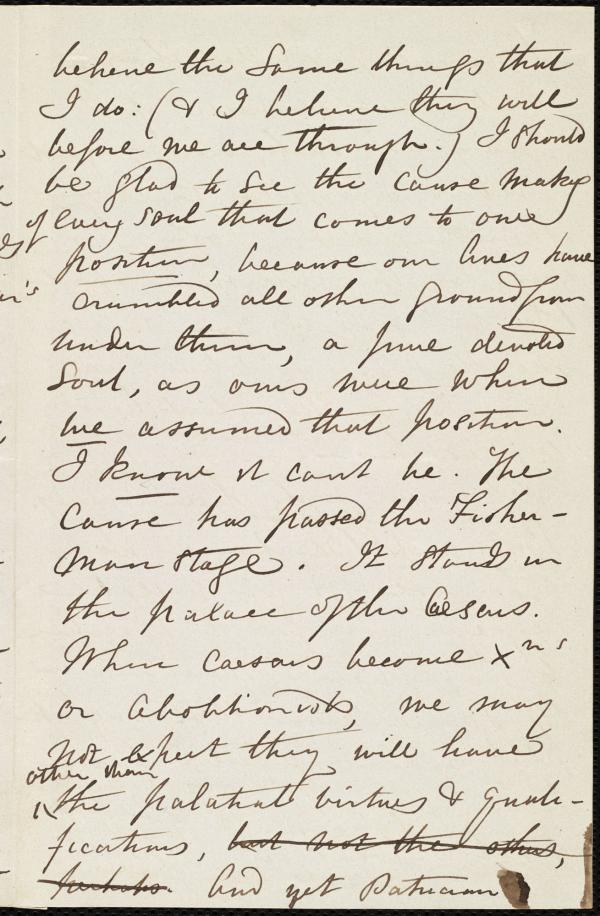 believe the same things that
I do: (& I believe they will
before we are through.) I should
be glad to see the cause make
of every soul that comes to our
position, because our lives have
crumbled all other ground from
under them, a pure devoted
Soul, as ours were when
we assumed that position.
I know it can't be. The
Cause has passed the Fisher-
man stage. It stands in
the palace of the Caesars.
When Caesars become Xns
or Abolitionists, we may
not expect they will have
other than
the palatial virtues & quali-
fications, but not the others,
perhaps. And yet Patrician